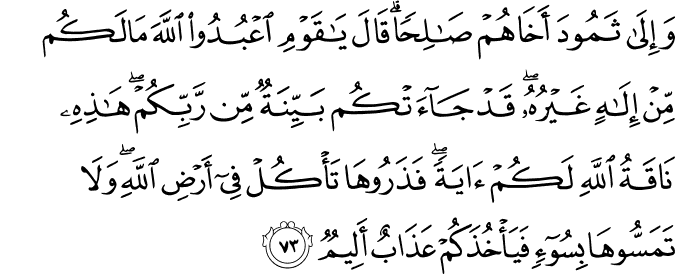 وَإِلَىٰ ثَمُودَ أَخَاهُمۡ صَٰلِحٗاۚ قَالَ يَٰقَوۡمِ ٱعۡبُدُواْ ٱللَّهَ مَالَكُم
مِّنۡ إِلَٰهٍ غَيۡرُهُۥۖ قَدۡ جَآءَتۡكُم بَيِّنَةٞ مِّن رَّبِّكُمۡۖ هَٰذِهِۦ
نَاقَةُ ٱللَّهِ لَكُمۡ ءَايَةٗۖ فَذَرُوهَا تَأۡكُلۡ فِيٓ أَرۡضِ ٱللَّهِۖ وَلَا
تَمَسُّوهَا بِسُوٓءٖ فَيَأۡخُذَكُمۡ عَذَابٌ أَلِيمٞ ٧٣